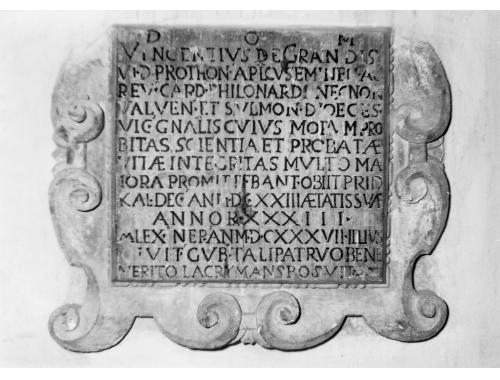 D O M
VINCENTIVS DE GRANDIS
V·I·D·PROTHON·APLCVS
REV·CARD·PHILONARDI NECNON
VALVEN·ET SVLMON·DIOECES·
VIC GNALIS CVIVS MORVM PRO
BITAS, SCIENTIA ET PROBATÆ
VITÆ INTEGRITAS MVLTO MA
IORA PROMITTEBANT OBIIT PRID
KAL·DEC·ANI ÆTATIS SVÆ
ANNOR·XXXIII·
ALEX·
GVB·TALI PATRVO BENE
MERITO LACRYMANS POSVIT